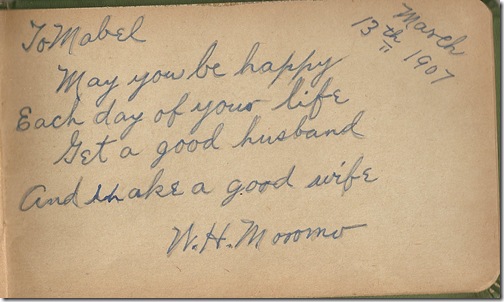 To Mabel
March
13th 1907
May you be happy
Each day of your life
Get a good husband
And make a good wife
W. H.